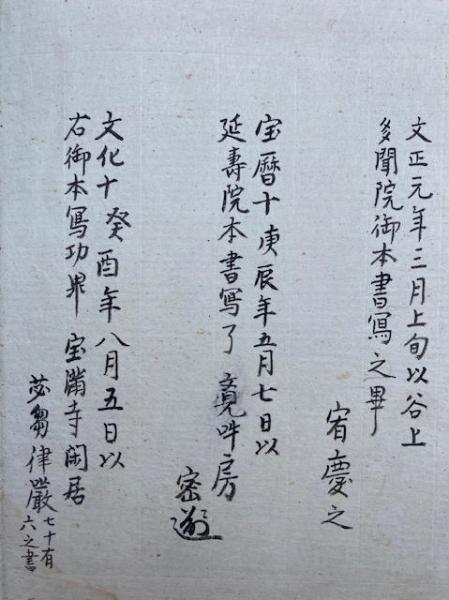 文正元年三月上旬以谷上
多聞院御本書寫之畢
宥慶之
宝暦十庚辰年五月七日以
延壽院本書写了 寛吽房
密遊
文化十癸酉年八月五日以
右御本写功畢 宝満寺閑居
苾蒭律巌七十有
六之書